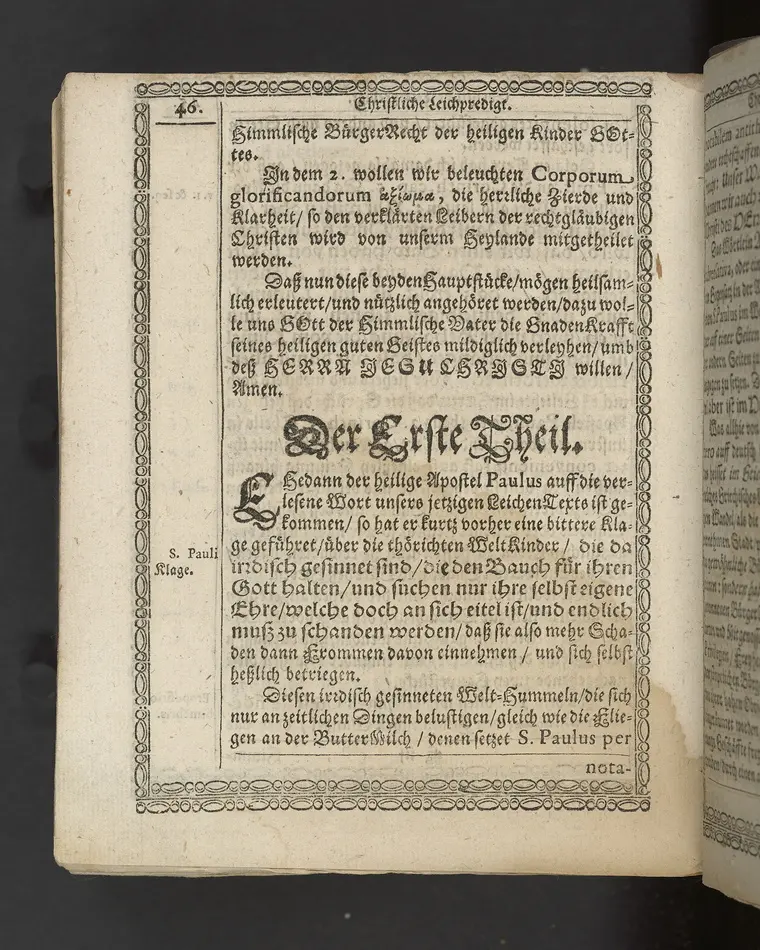 46.
Christliche Leichpredigt.
Himmlische BürgerRecht der heiligen Kinder GOt-
tes.
In dem 2. wollen wir beleuchten Corporum
glorificandorum ἀξίωμα, die herrliche Zierde und
Klarheit/ so den verklärten Leibern der rechtgläubigen
Christen wird von unserm Heylande mitgetheilet
werden.
Daß nun diese beyden Hauptstücke/mögen heilsam-
lich erleutert/und nützlich angehöret werden/dazu wol-
le uns GOtt der Himmlische Vater die GnadenKrafft
seines heiligen guten Geistes mildiglich verleyhen/umb
deß HERRN JESU CHRISTI willen/
Amen.
Der Erste Theil.
EHedann der heilige Apostel Paulus auff die ver-
lesene Wort unsers jetzigen LeichenTexts ist ge-
kommen/ so hat er kurtz vorher eine bittere Kla-
ge geführet/über die thörichten WeltKinder/ die da
S. Pauli
Klage.
irrdisch gesinnet sind/die den Bauch für ihren
Gott halten/und suchen nur ihre selbst eigene
Ehre/welche doch an sich eitel ist/und endlich
muß zu schanden werden/daß sie also mehr Scha-
den dann Frommen davon einnehmen/ und sich selbst
heßlich betriegen.
Diesen irrdisch gesinneten Welt-Hummeln/die sich
nur an zeitlichen Dingen belustigen/gleich wie die Flie-
gen an der ButterMilch/ denen setzet S. Paulus per
nota-